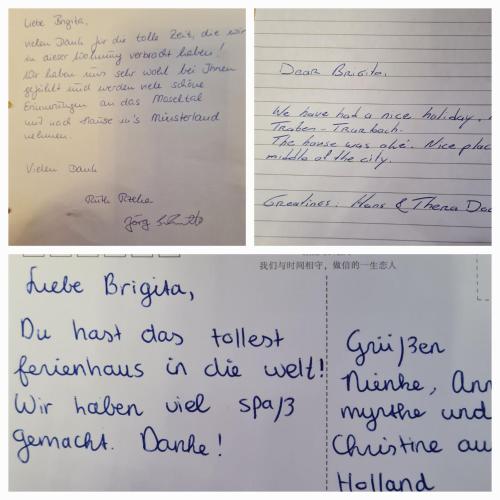 Liebe Brigita,
vielen Dank für die tolle Zeit, die wir
in dieser Wohnung verbracht haben!
Wir haben uns sehr wohl bei Ihnen
gefühlt und werden viele schöne
Erinnerungen an das Moseltal
mit nach Hause in's Münsterland
nehmen.
Vielen Dank
Ruth
Jörg
Dear Brigita,
We have had a nice holiday,
Traben-Trarbach.
The house was oké. Nice plac
middle of the city.
Greatines. Hans & Thera Dac
我们与时间相守，做信的一生恋人
Liebe Brigita,
Du hast das tollest
ferienhaus in die welt!
Wir haben viel spaß
gemacht. Danke!
Grüßen
Nienke, Ann
myrthe und
Christine au
Holland